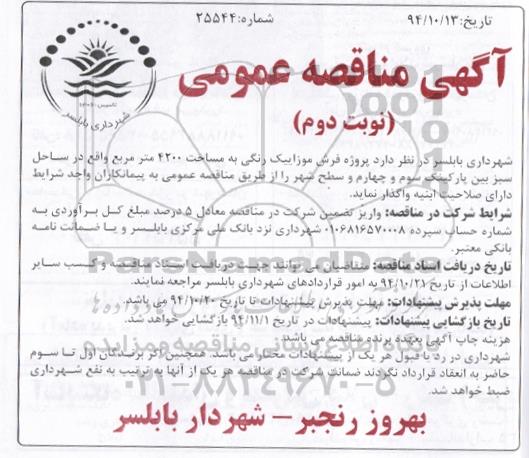 تاریخ:۹۴/۱۰/۱۳
شماره:۲۵۵۴۴
تاسیس ۱۳۰۶
شهرداری بابلسر
آگهی مناقصه عمومی
(نوبت دوم)
شهرداری بابلسر در نظر دارد پروژه فرش موزاییک رنگی به مساحت ۴۲۰۰ متر مربع واقع در ساحل
سبز بین پارکینگ سوم و چهارم و سطح شهر را از طریق مناقصه عمومی به پیمانکاران واجد شرایط
دارای صلاحیت ابنیه واگذار نماید.
شرایط شرکت در مناقصه: واریز تضمین شرکت در مناقصه معادل ۵ درصد مبلغ کل برآوردی به
شماره حساب سپرده ۰۱۰۶۸۱۶۵۷۰۰۰۸ شهرداری نزد بانک ملی مرکزی بابلسر و یا ضمانت نامه
بانکی معتبر.
تاریخ دریافت اسناد مناقصه: متقاضیان می توانند جهت دریافت اسناد مناقصه و کسب سایر
اطلاعات از تاریخ ۹۴/۱۰/۲۱ به امور قراردادهای شهرداری بابلسر مراجعه نمایند.
مهلت پذیرش پیشنهادات: مهلت پذیرش پیشنهادات تا تاریخ ۹۴/۱۰/۲۰ می باشد.
تاریخ بازگشایی پیشنهادات: پیشنهادات در تاریخ ۹۴/۱۱/۱ بازگشایی خواهد شد.
هزینه چاپ آگهی بعهده برنده مناقصه می باشد.
شهرداری در رد یا قبول هر یک از پیشنهادات مختار می باشد. همچنین اگر برندگان اول تا سوم
حاضر به انعقاد قرارداد نگردند ضمانت شرکت در مناقصه هر یک از آنها به ترتیب به نفع شهرداری
ضبط خواهد شد.
ParsNamadData
پایگاه اطلاع رسانی مناقصه و مزایده
۰۲۱-۸۸۳۴۹۶۷۰-۵
بهروز رنجبر – شهردار بابلسر